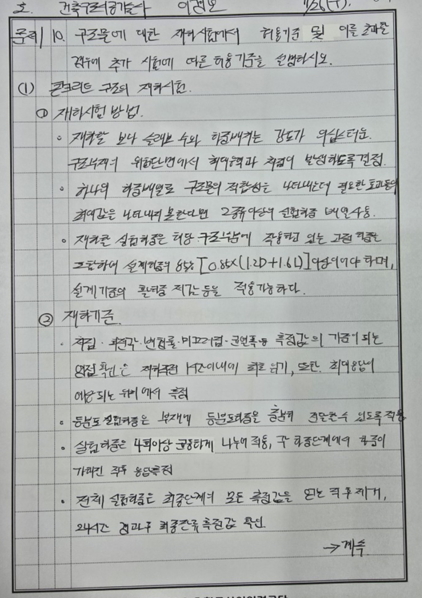 건축구조기술사
문제 10. 구조물에 대한 재하시험에서 허용기준 및 이를 초과할
경우에 추가 시험에 따른 허용기준을 설명하시오.
(1) 콘크리트 구조의 재하시험.
① 재하시험 방법.
• 재하할 보나 슬래브 수와 하중배치는 강도가 의심스러운
구조부재의 위험단면에서 최대응력과 처짐이 발생하도록 결정
• 하나의 하중배열로 구조물의 적합성을 나타내는데 필요한 효과들의
최대값을 나타내지 못한다면 2종류이상의 실험하중 배열 사용.
• 재하할 실험하중은 해당 구조부분에 작용하고 있는 고정하중을
포함하여 설계하중의 85% [0.85×(1.2D+1.6L)] 이상이어야 하며,
설계기준의 활하중 저감 등을 적용 가능하다.
② 재하기준.
• 처짐·회전각·변형률·미끄러짐·균열폭 등 측정값의 기준이 되는
영점 확인은 재하직전 1시간이내에 최초 읽기, 또한 최대응답이
예상되는 위치에서 측정
• 등분포 실험하중은 부재에 등분포하중을 충분히 전달할수 있도록 적용
• 실험하중은 4회이상 균등하게 나누어 적용, 각 하중단계에서 하중이
가해진 직후 응답측정
• 전체 실험하중은 최종단계의 모든 측정값을 얻은 직후 제거,
24시간 경과후 최종잔류측정값 확인.
→ 계속